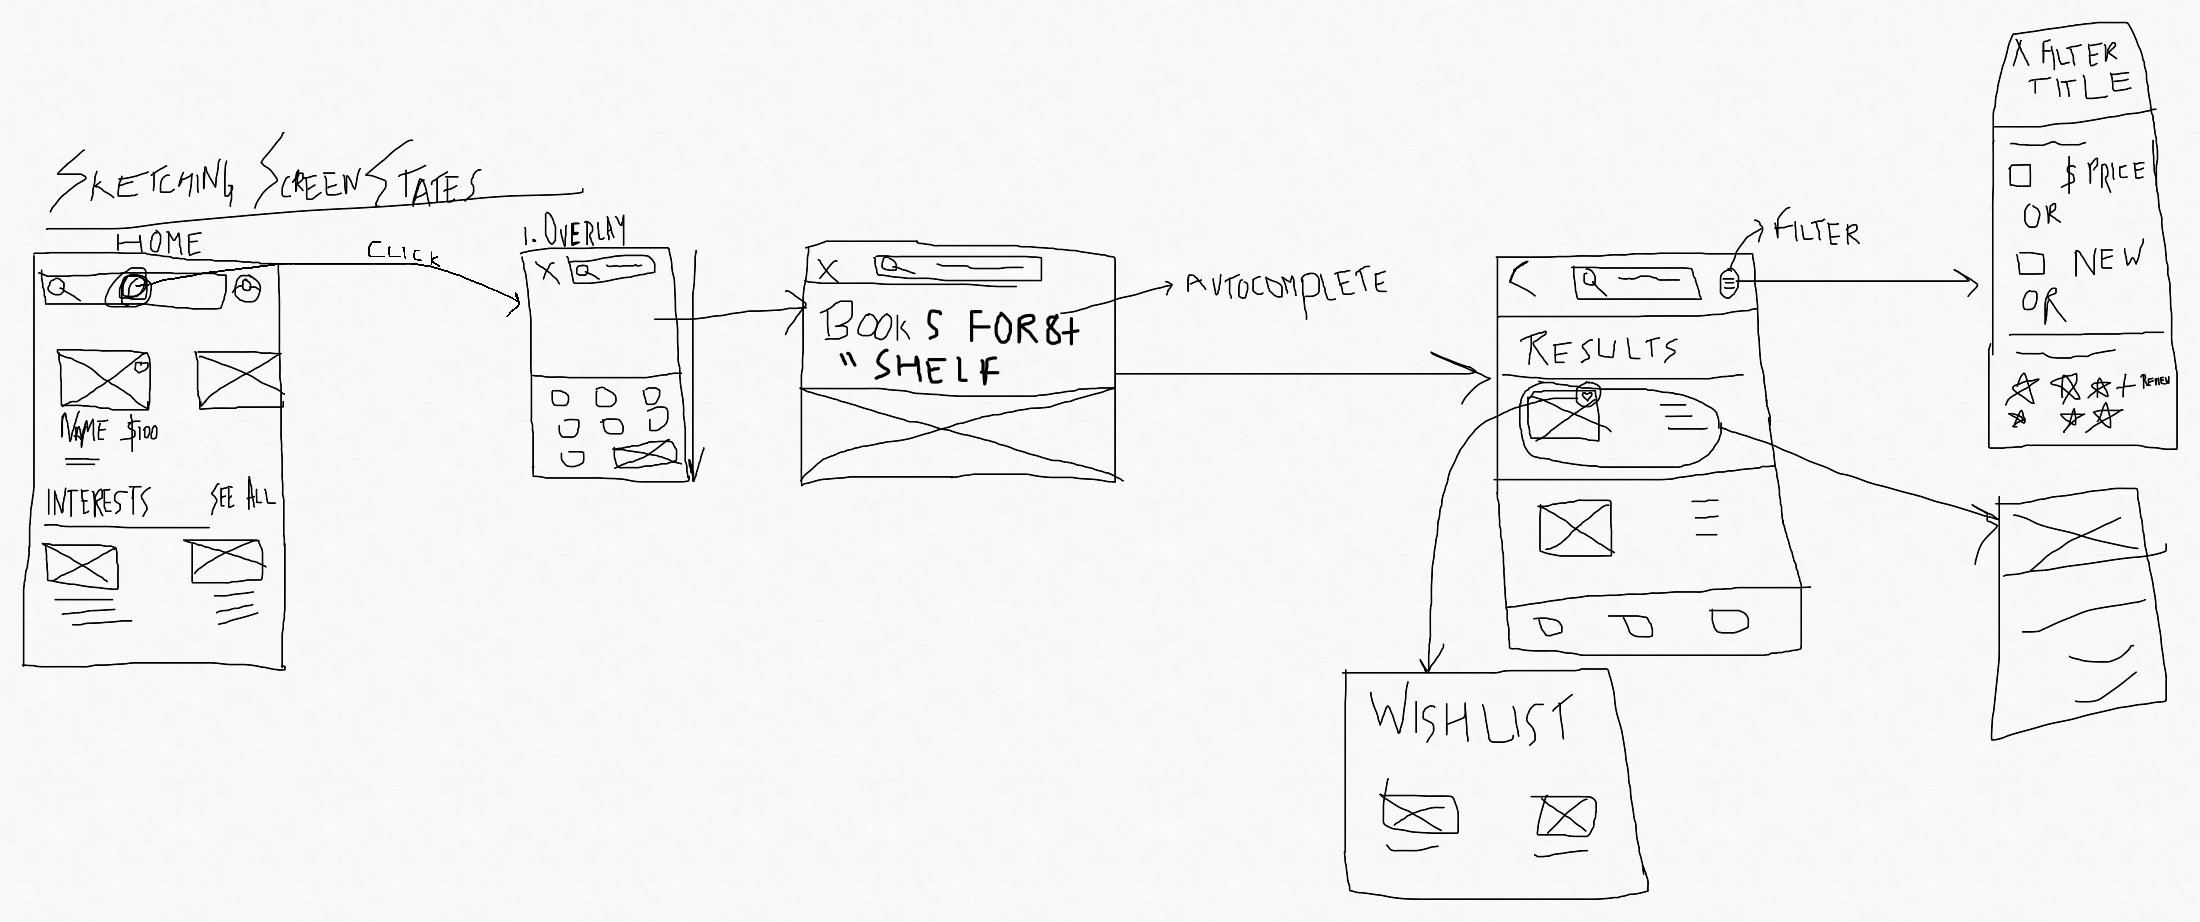 SKETCHING SCREEN STATES
HOME
CLICK
NAME $100
INTERESTS SEE ALL
1. OVERLAY
X
X
BOOKS FOR 8+
" SHELF
AUTOCOMPLETE
FILTER
RESULTS
WISHLIST
X FILTER
TITLE
$ PRICE
OR
NEW
OR
+ REVIEW